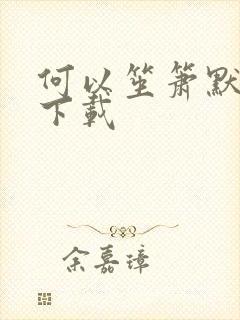 何以笙箫默
下载
余嘉璋